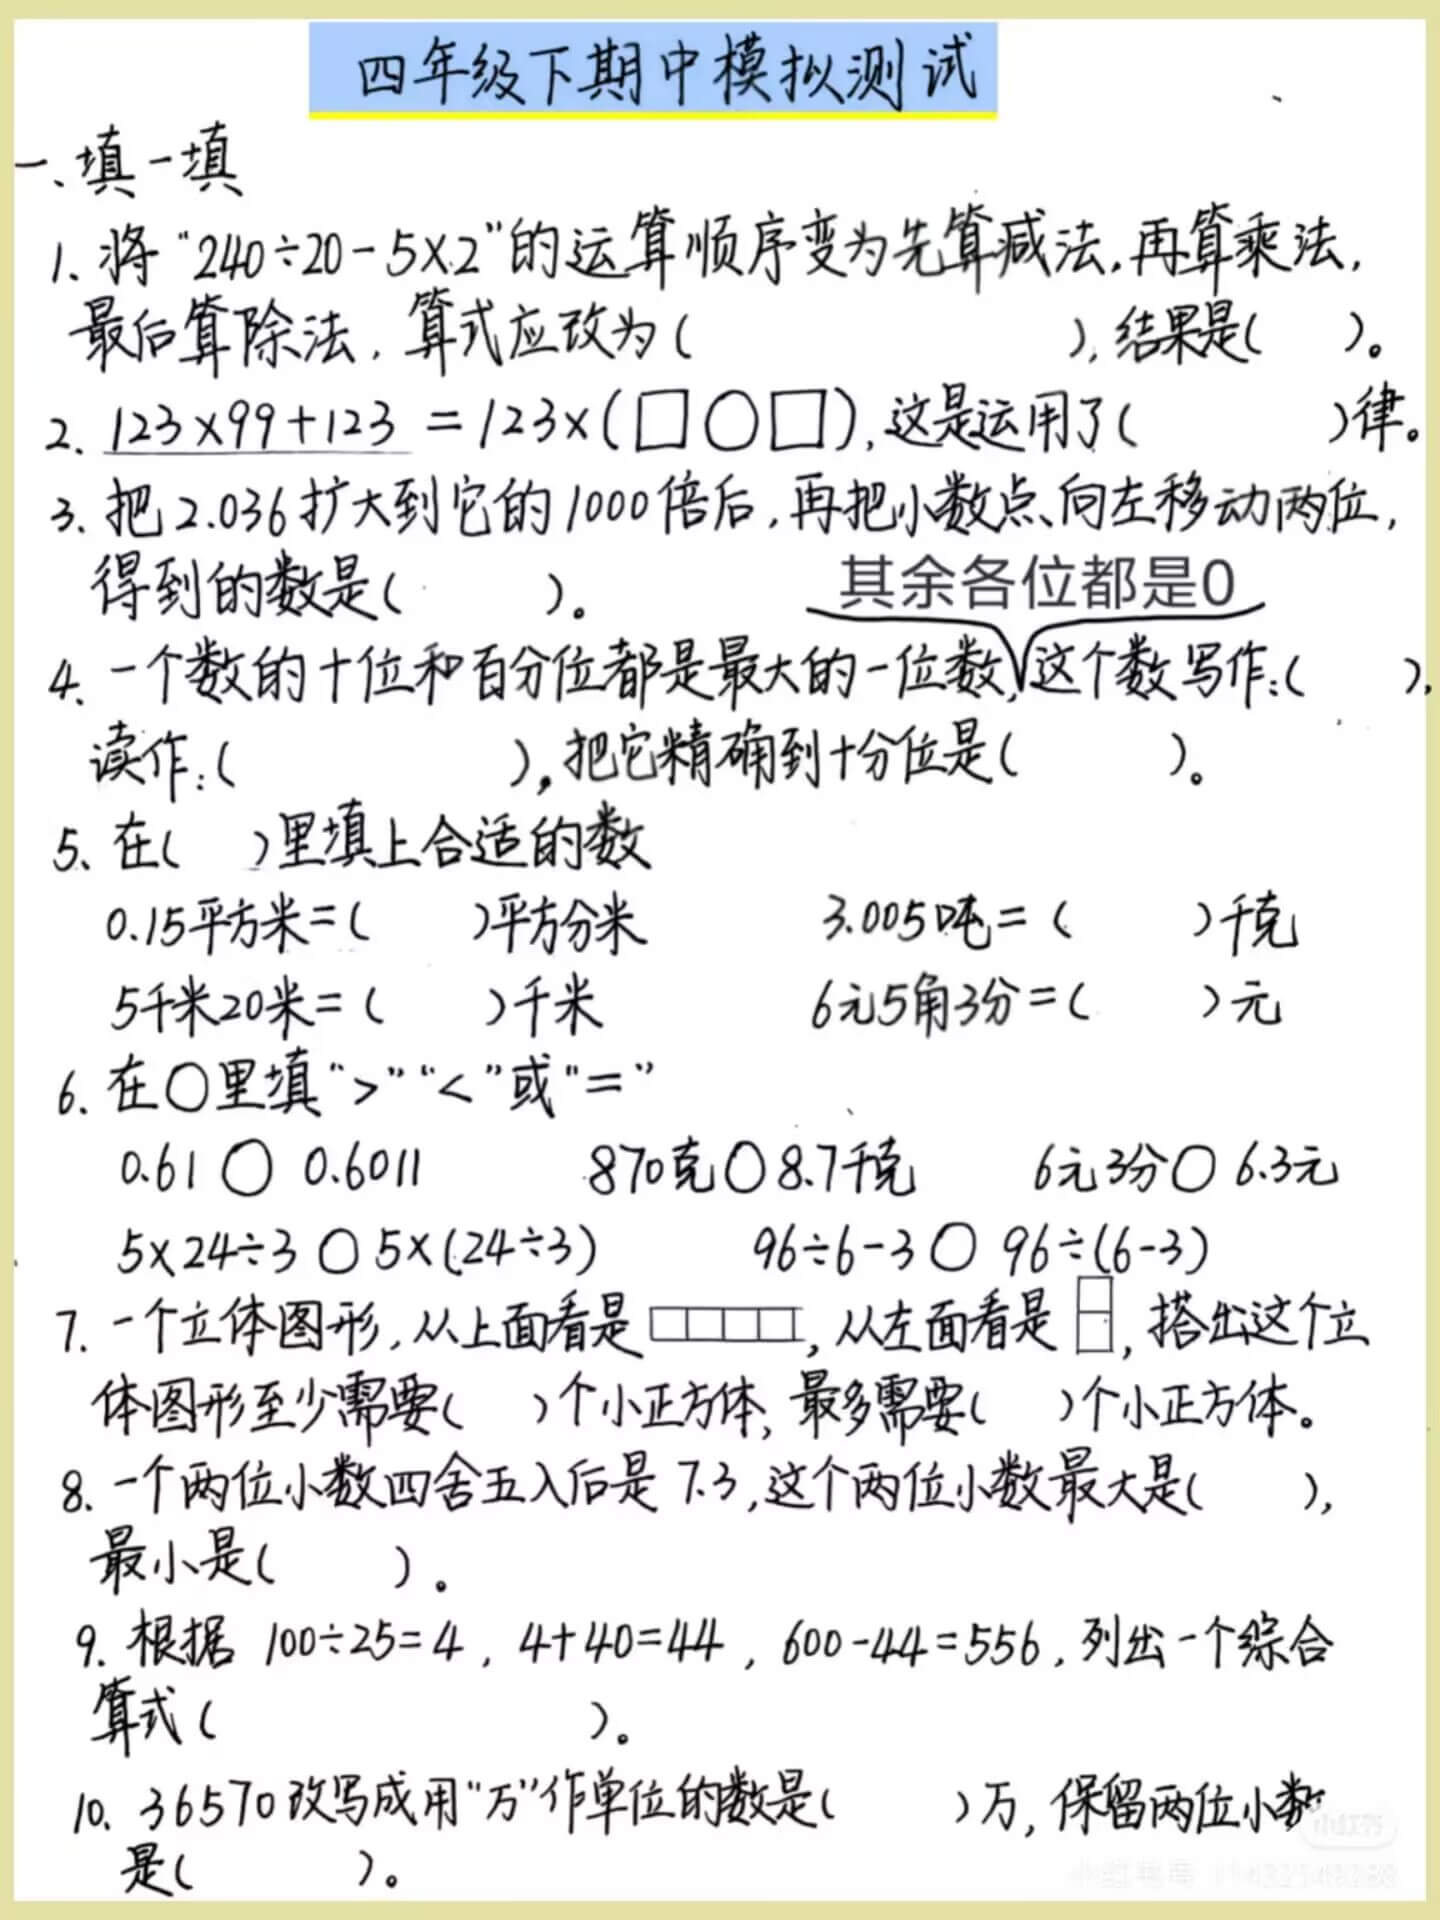 四年级下期中模拟测试
一、填一填
1. 将“240÷20-5×2”的运算顺序变为先算减法,再算乘法,
最后算除法,算式应改为( ),结果是( )。
2. 123×99+123 =123×(□○□),这是运用了( )律。
3. 把2.036扩大到它的1000倍后,再把小数点向左移动两位,
得到的数是( )。
其余各位都是0
4. 一个数的十位和百分位都是最大的一位数,这个数写作:( ),
读作:( ),把它精确到十分位是( )。
5. 在( )里填上合适的数
0.15平方米=( )平方分米 3.005吨=( )千克
5千米20米=( )千米 6元5角3分=( )元
6. 在○里填“>”“<”或“=”
0.61○0.6011 870克○8.7千克 6元3分○6.3元
5×24÷3○5×(24÷3) 96÷6-3○96÷(6-3)
7. 一个立体图形,从上面看是 ,从左面看是 ,搭出这个立
体图形至少需要( )个小正方体,最多需要( )个小正方体。
8. 一个两位小数四舍五入后是7.3,这个两位小数最大是( ),
最小是( )。
9. 根据 100÷25=4,4+40=44,600-44=556,列出一个综合
算式( )。
10. 36570改写成用“万”作单位的数是( )万,保留两位小数
是( )。
小红书